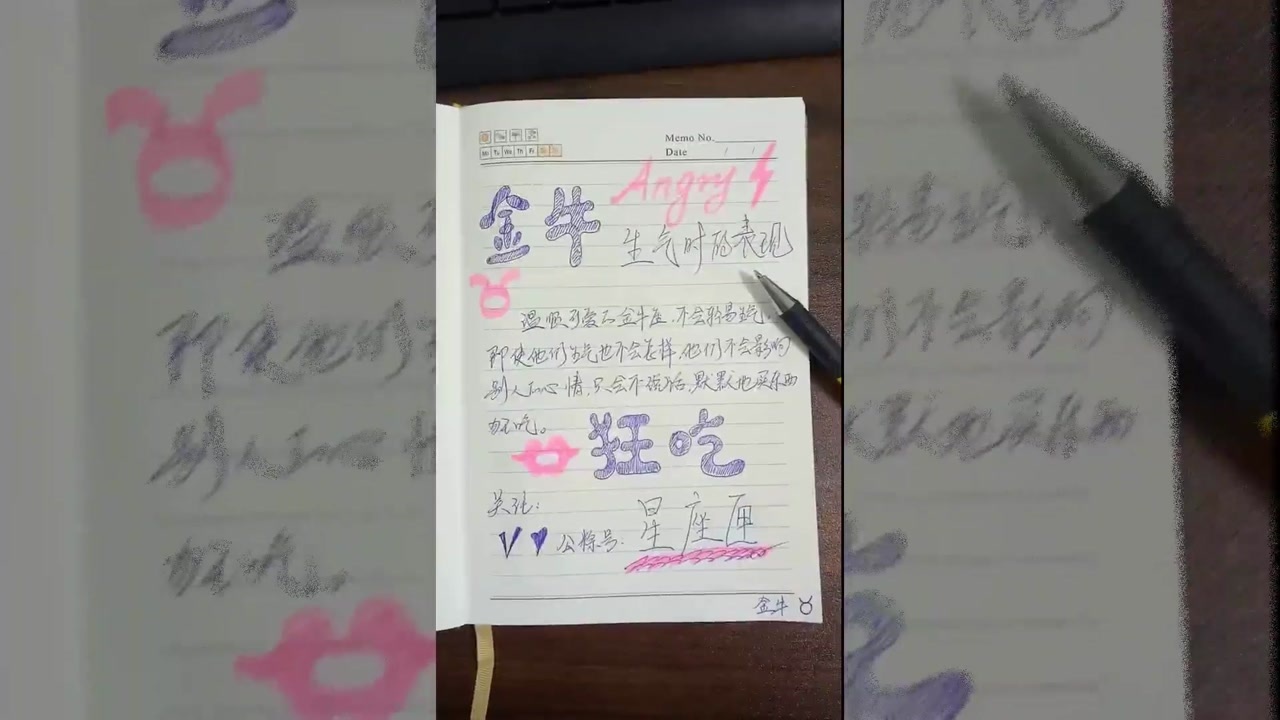 Memo No.
Mo Tu We Th Fr Sa Su
Date / /
Angry
金牛
生气时的表现
温顺可爱的金牛座,不会轻易生气。
即使他们生气也不会怎样,他们不会影响
别人的心情,只会不说话,默默地买东西
狂吃。
狂吃
关注:
V 公粽号:星座匣
金牛 ♉